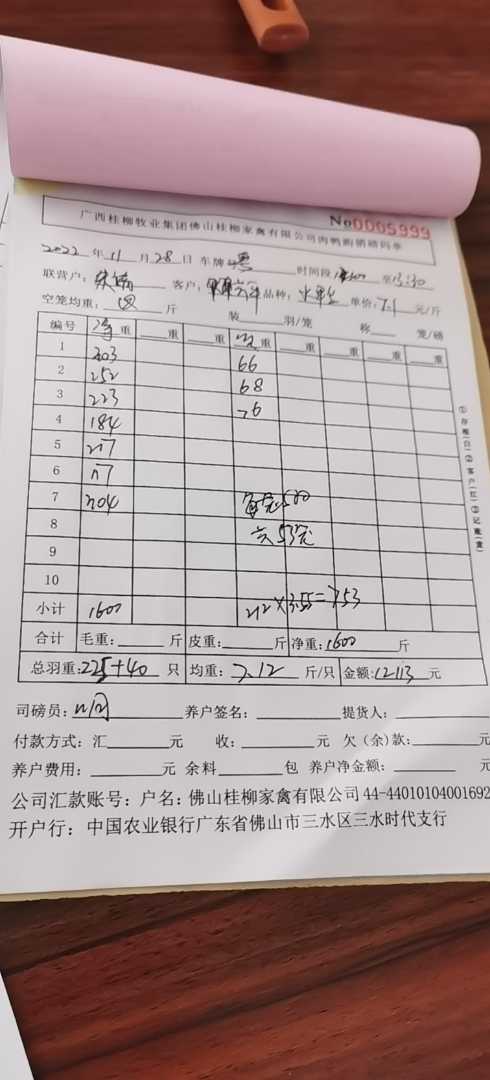 广西桂柳牧业集团佛山桂柳家禽有限公司肉鸭购销磅码单
No 0005999
2022 年 11 月 28 日 车牌 时间段 至
联营户: 客户: 品种: 单价: 7.1 元/斤
空笼均重: 斤 装 羽/笼 称 笼/磅
编号 净重 重 重 重 重 重 重 重
1 203 66
2 252 68
3 223 76
4 184
5 217
6
7 204
8 共 53元
9
10
小计 1600 212×3.55=753
合计 毛重: 斤 皮重: 斤 净重: 1600 斤
总羽重: 225+40 只 均重: 7.12 斤/只 金额: 12113 元
司磅员: 养户签名: 提货人:
付款方式: 汇 元 收: 元 欠(余)款: 元
养户费用: 元 余料 包 养户净金额: 元
公司汇款账号: 户名: 佛山桂柳家禽有限公司 44-44010104001692
开户行: 中国农业银行广东省佛山市三水区三水时代支行
①存根(白)②客户(红)③记账(黄)